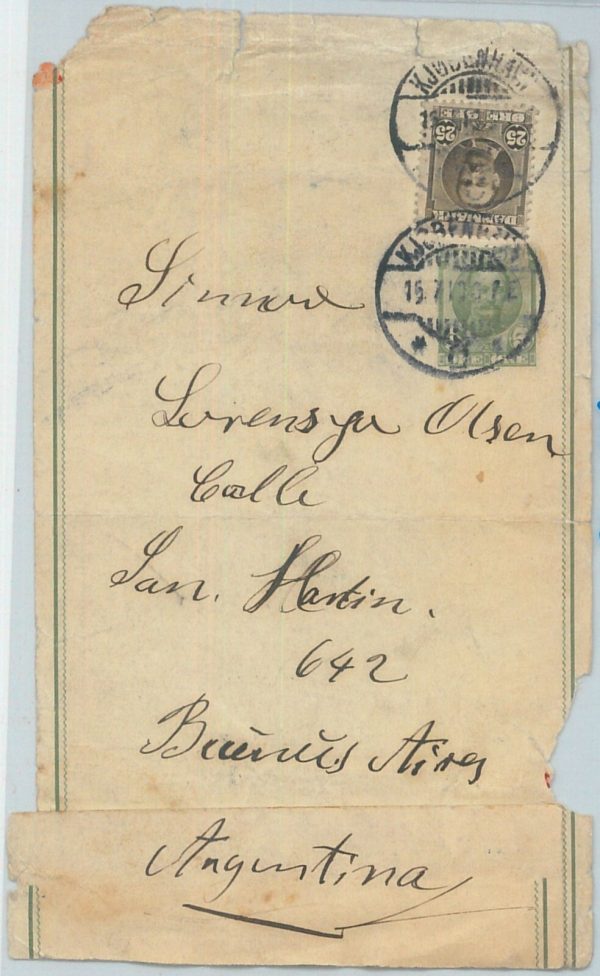 KJØBENHAVN
25 25
ØRE
DANMARK
KJØBENHAVN
15.7.10
ØRE
Lorenszo Olsen
Calle
San. Martin.
642
Buenus Aires
Argentina